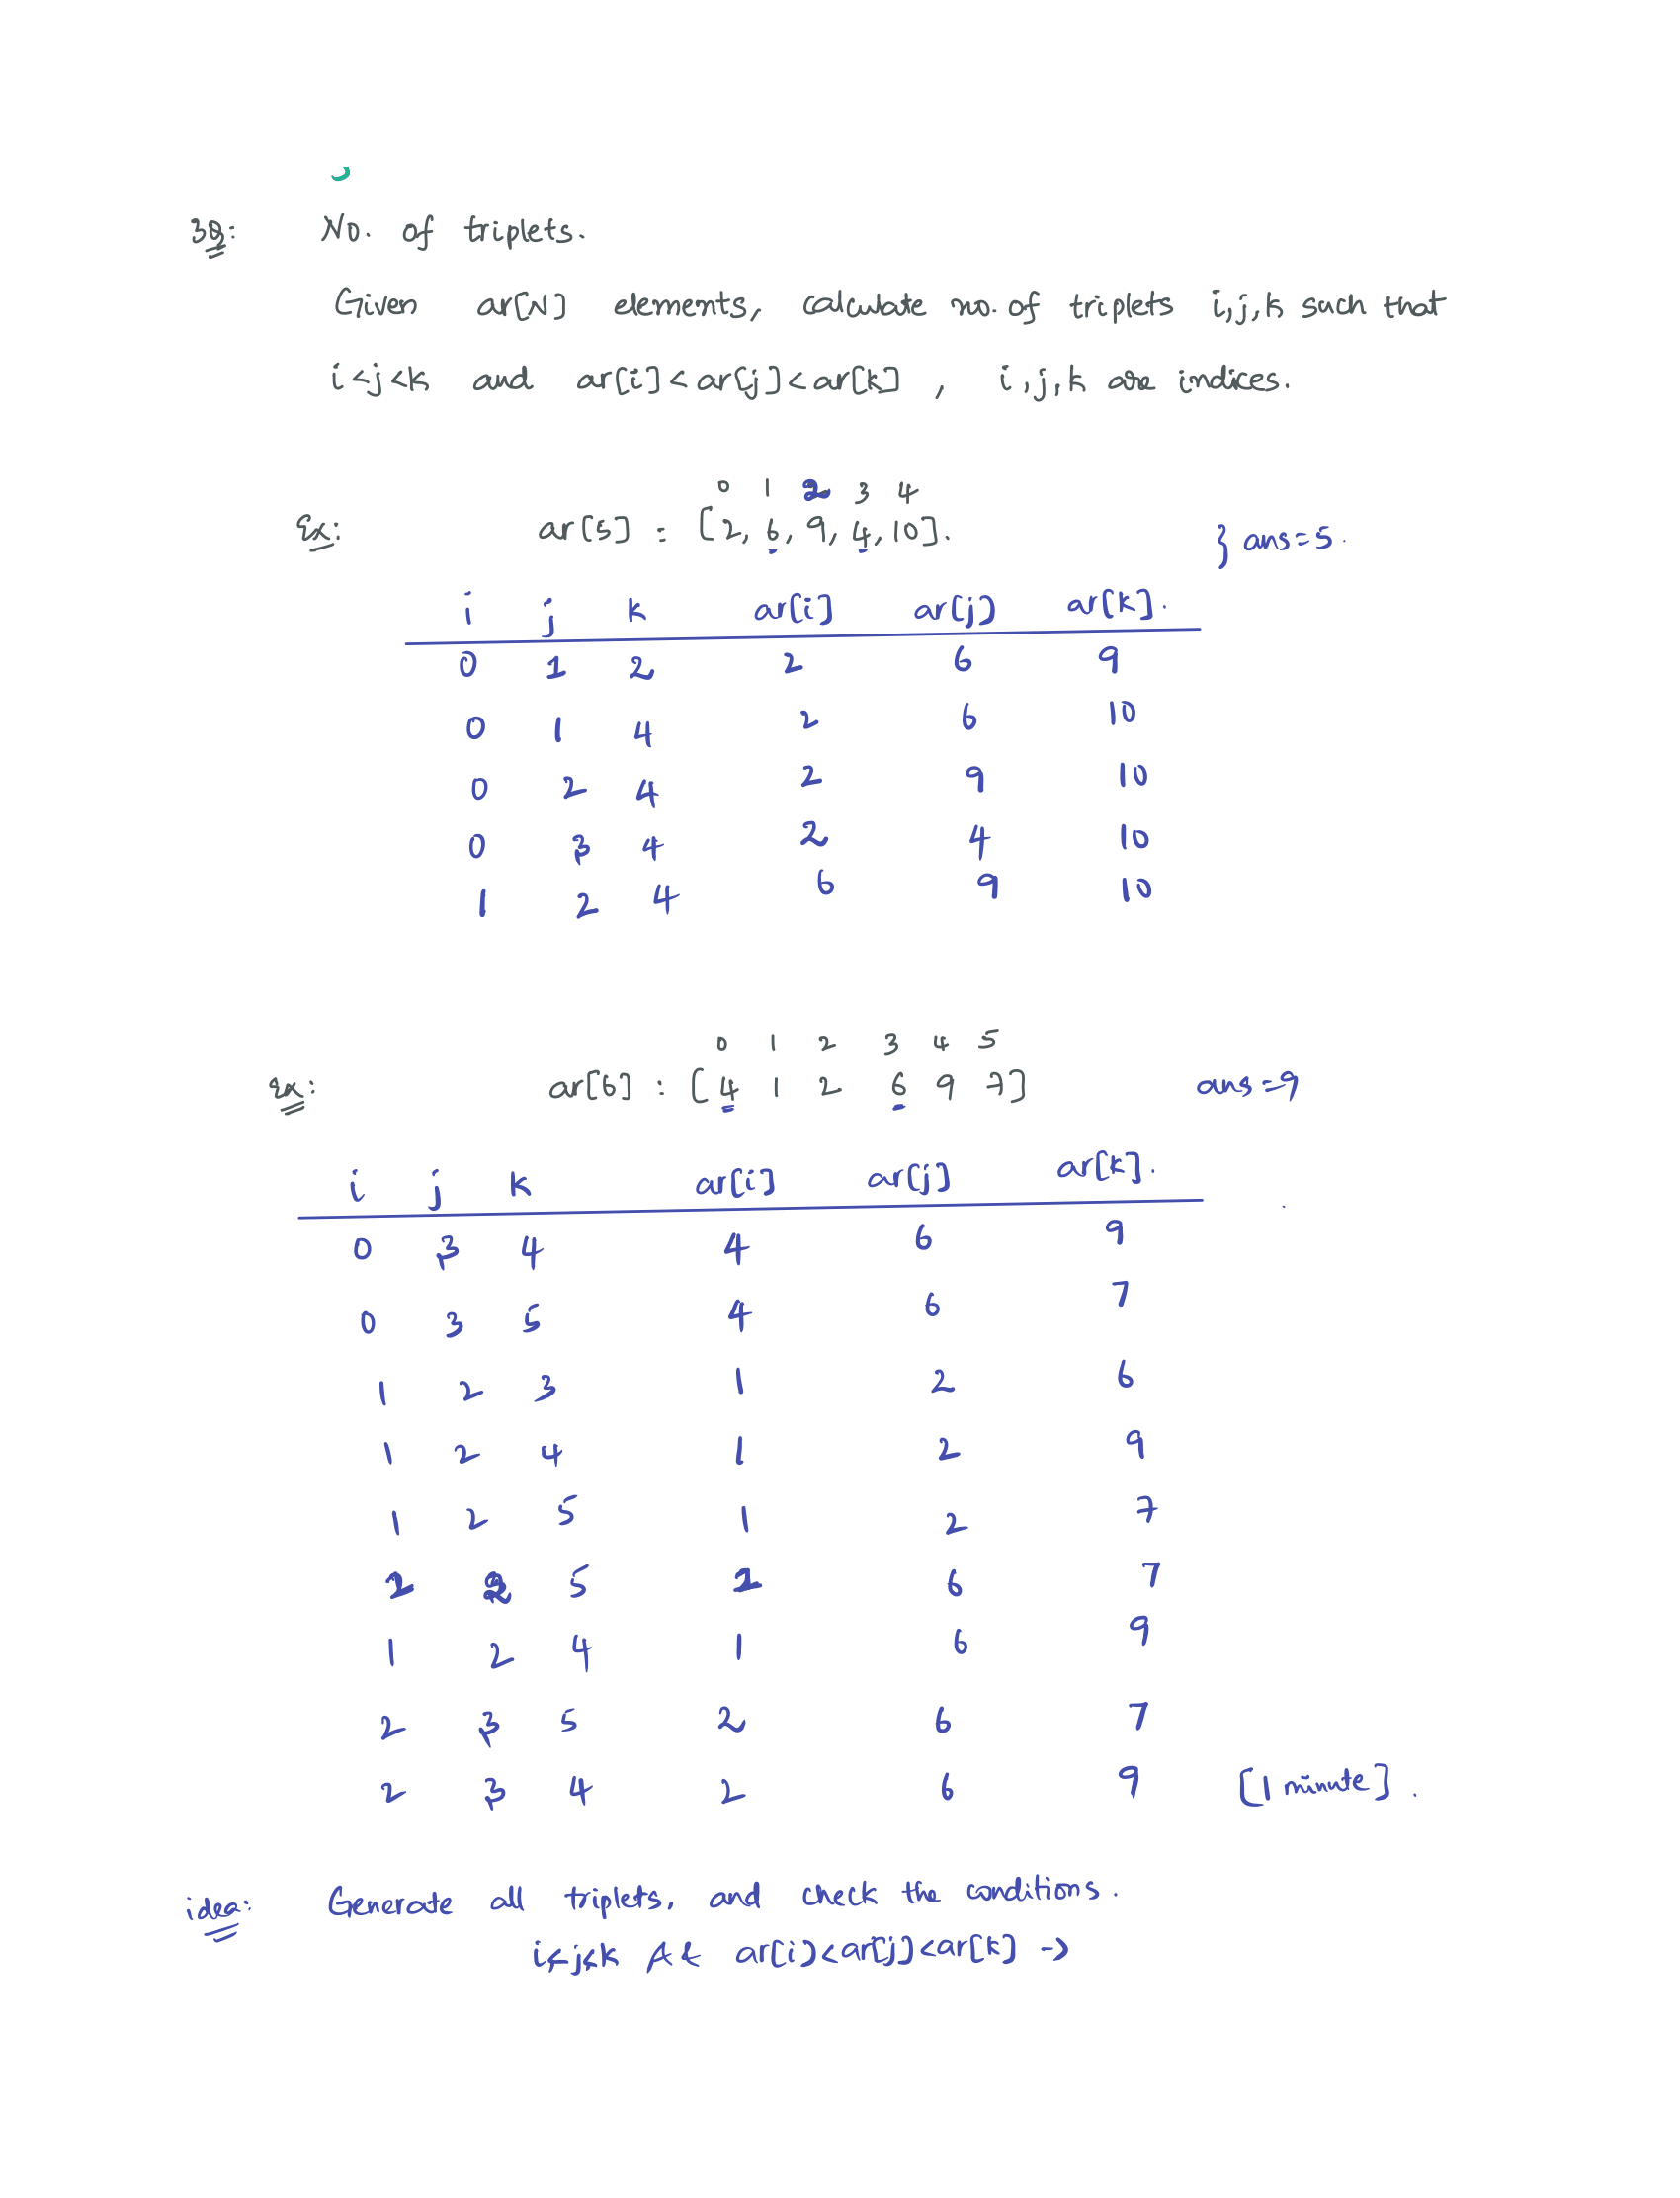 3Q: No. of triplets.
Given ar[N] elements, calculate no. of triplets i,j,k such that
i<j<k and ar[i]<ar[j]<ar[k] , i,j,k are indices.
0 1 2 3 4
Ex: ar[5] : [2, 6, 9, 4, 10]. } ans=5.
i j k ar[i] ar[j] ar[k].
0 1 2 2 6 9
0 1 4 2 6 10
0 2 4 2 9 10
0 3 4 2 4 10
1 2 4 6 9 10
0 1 2 3 4 5
Ex: ar[6] : [4 1 2 6 9 7] ans=9
i j k ar[i] ar[j] ar[k].
0 3 4 4 6 9
0 3 5 4 6 7
1 2 3 1 2 6
1 2 4 1 2 9
1 2 5 1 2 7
5 6 7
1 2 4 1 6 9
2 3 5 2 6 7
2 3 4 2 6 9 [1 minute].
idea: Generate all triplets, and check the conditions.
i<j<k && ar[i]<ar[j]<ar[k] →